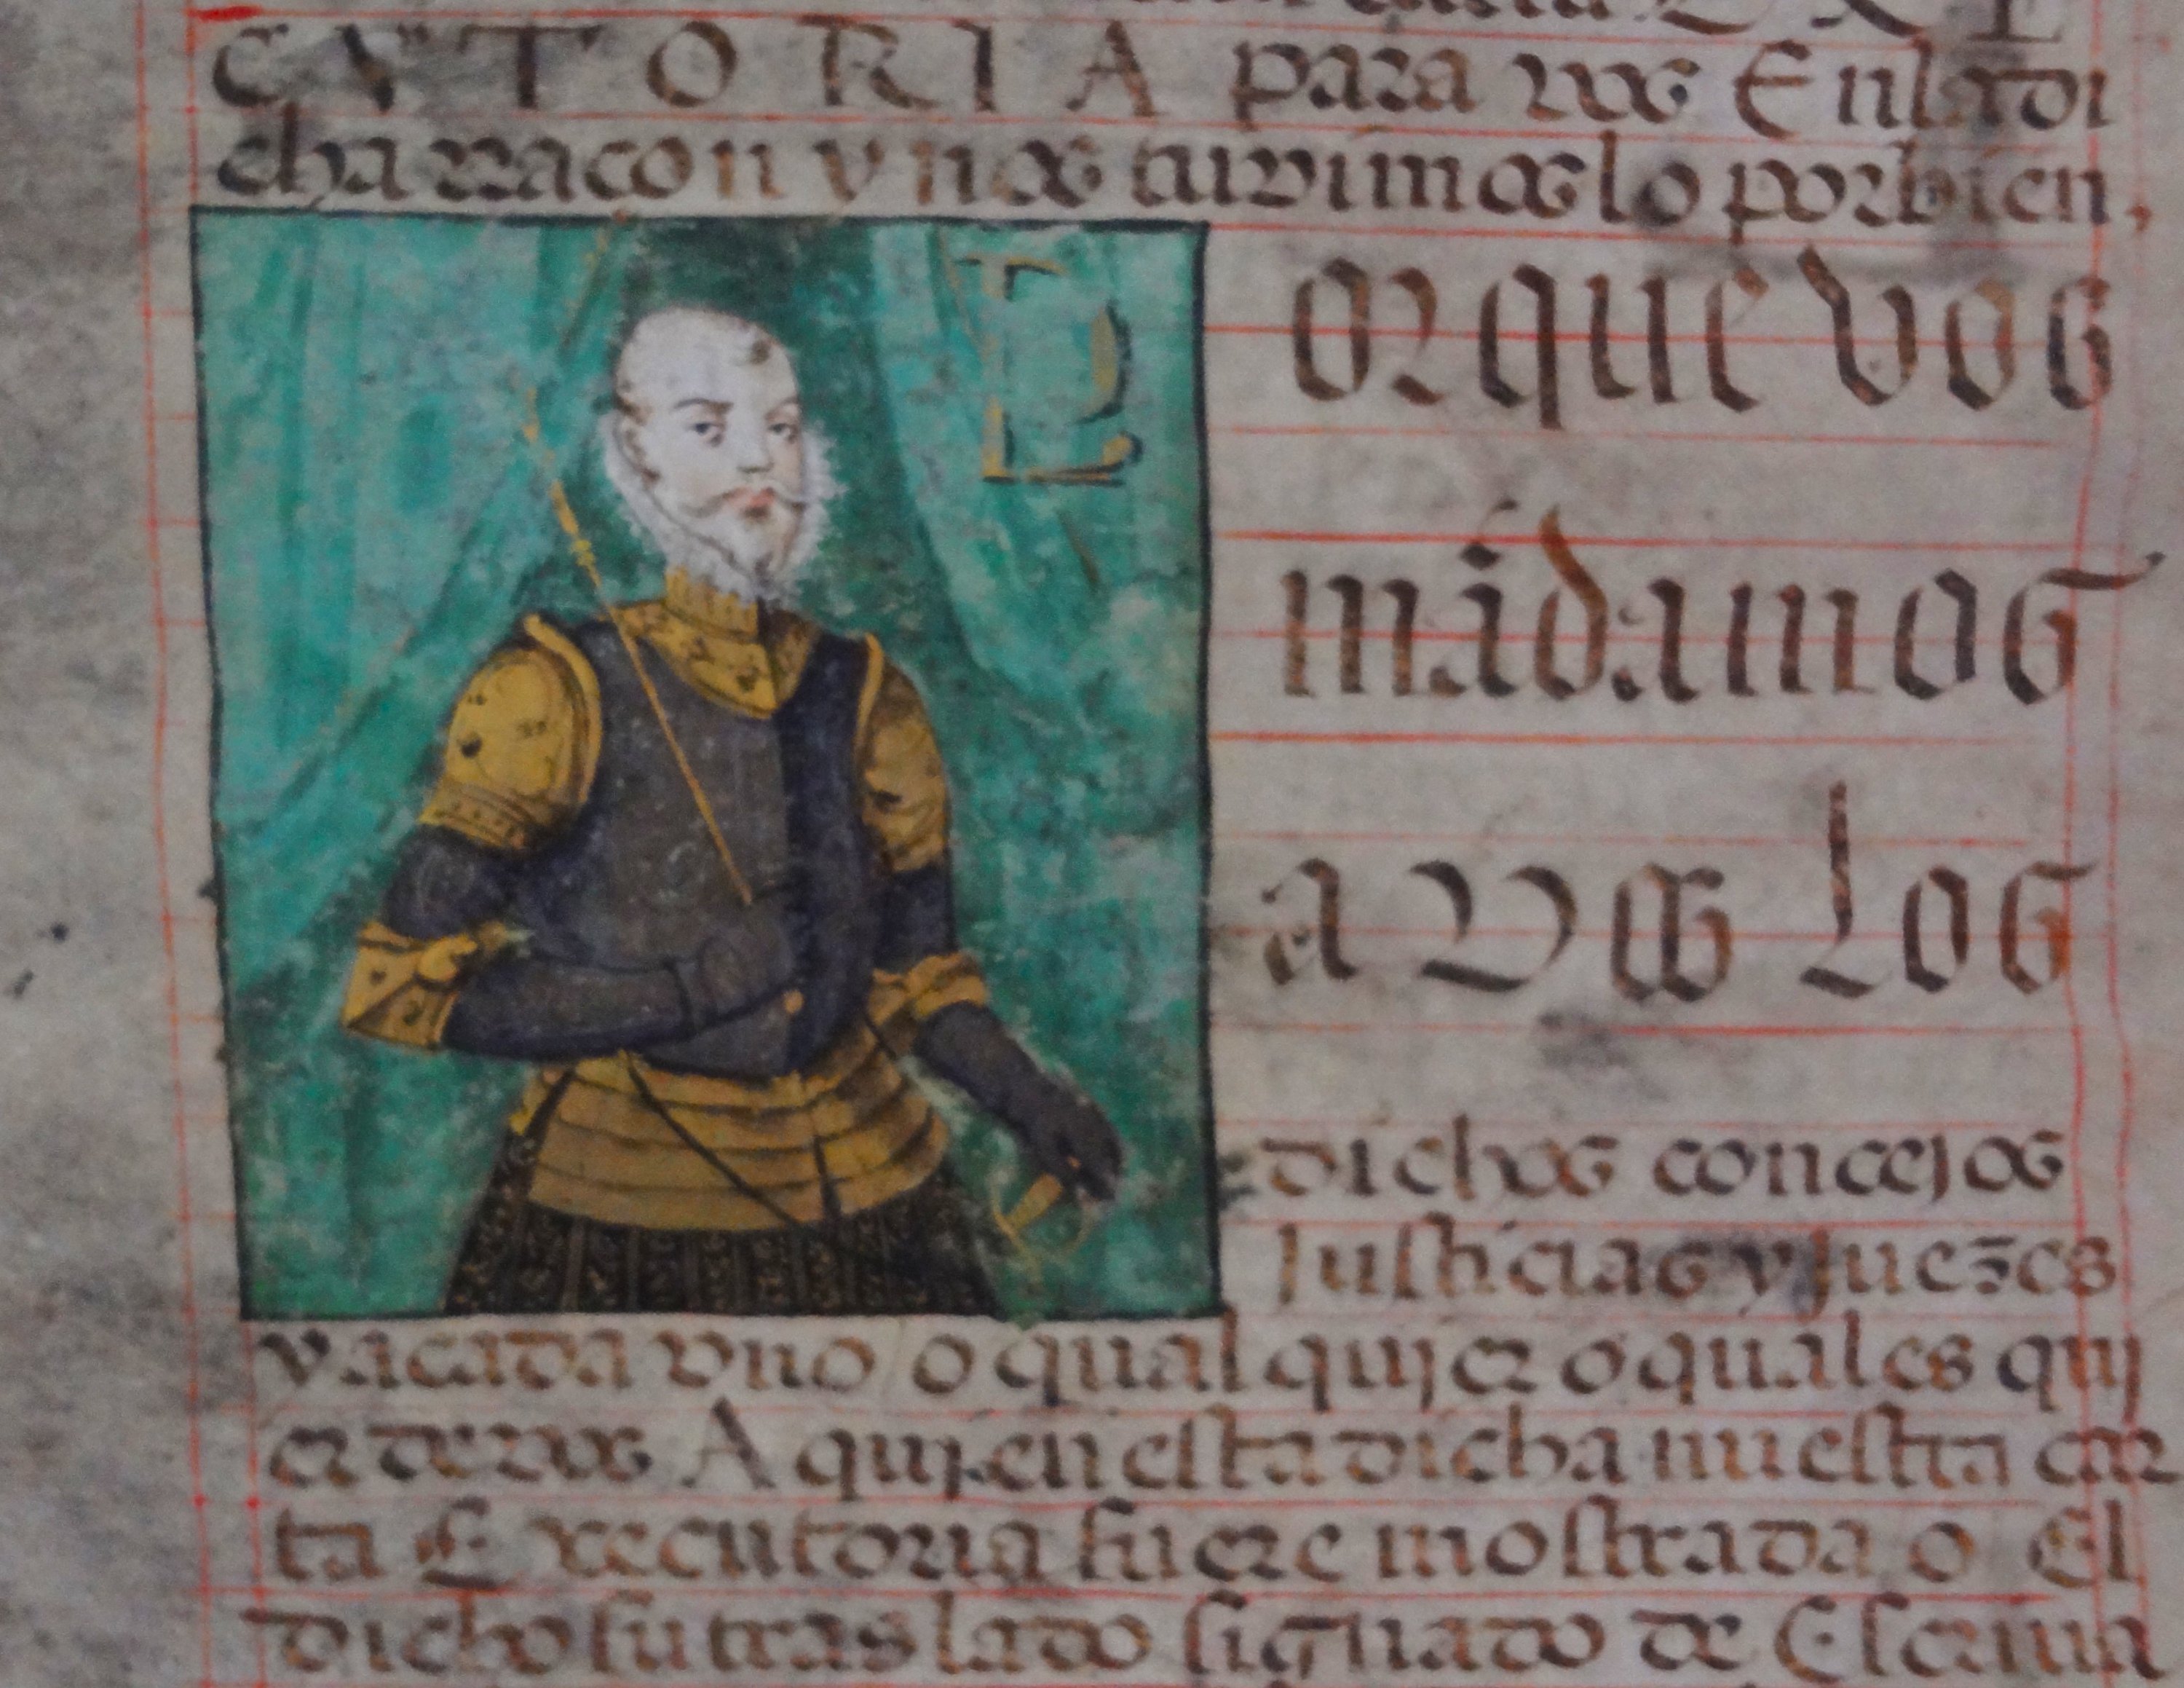 CVTORIA para vos Enladi
cha rraçon y nos tuvimoslo porbien,
P
orque vos
mādamos
a Vos los
dichos conçejos
Justiçias y juezes
y acada vno o qualquier o quales qui
er de vos A quien esta dicha nuestra car
ta Executoria fuere mostrada o El
dicho su traslado signado de Escriua